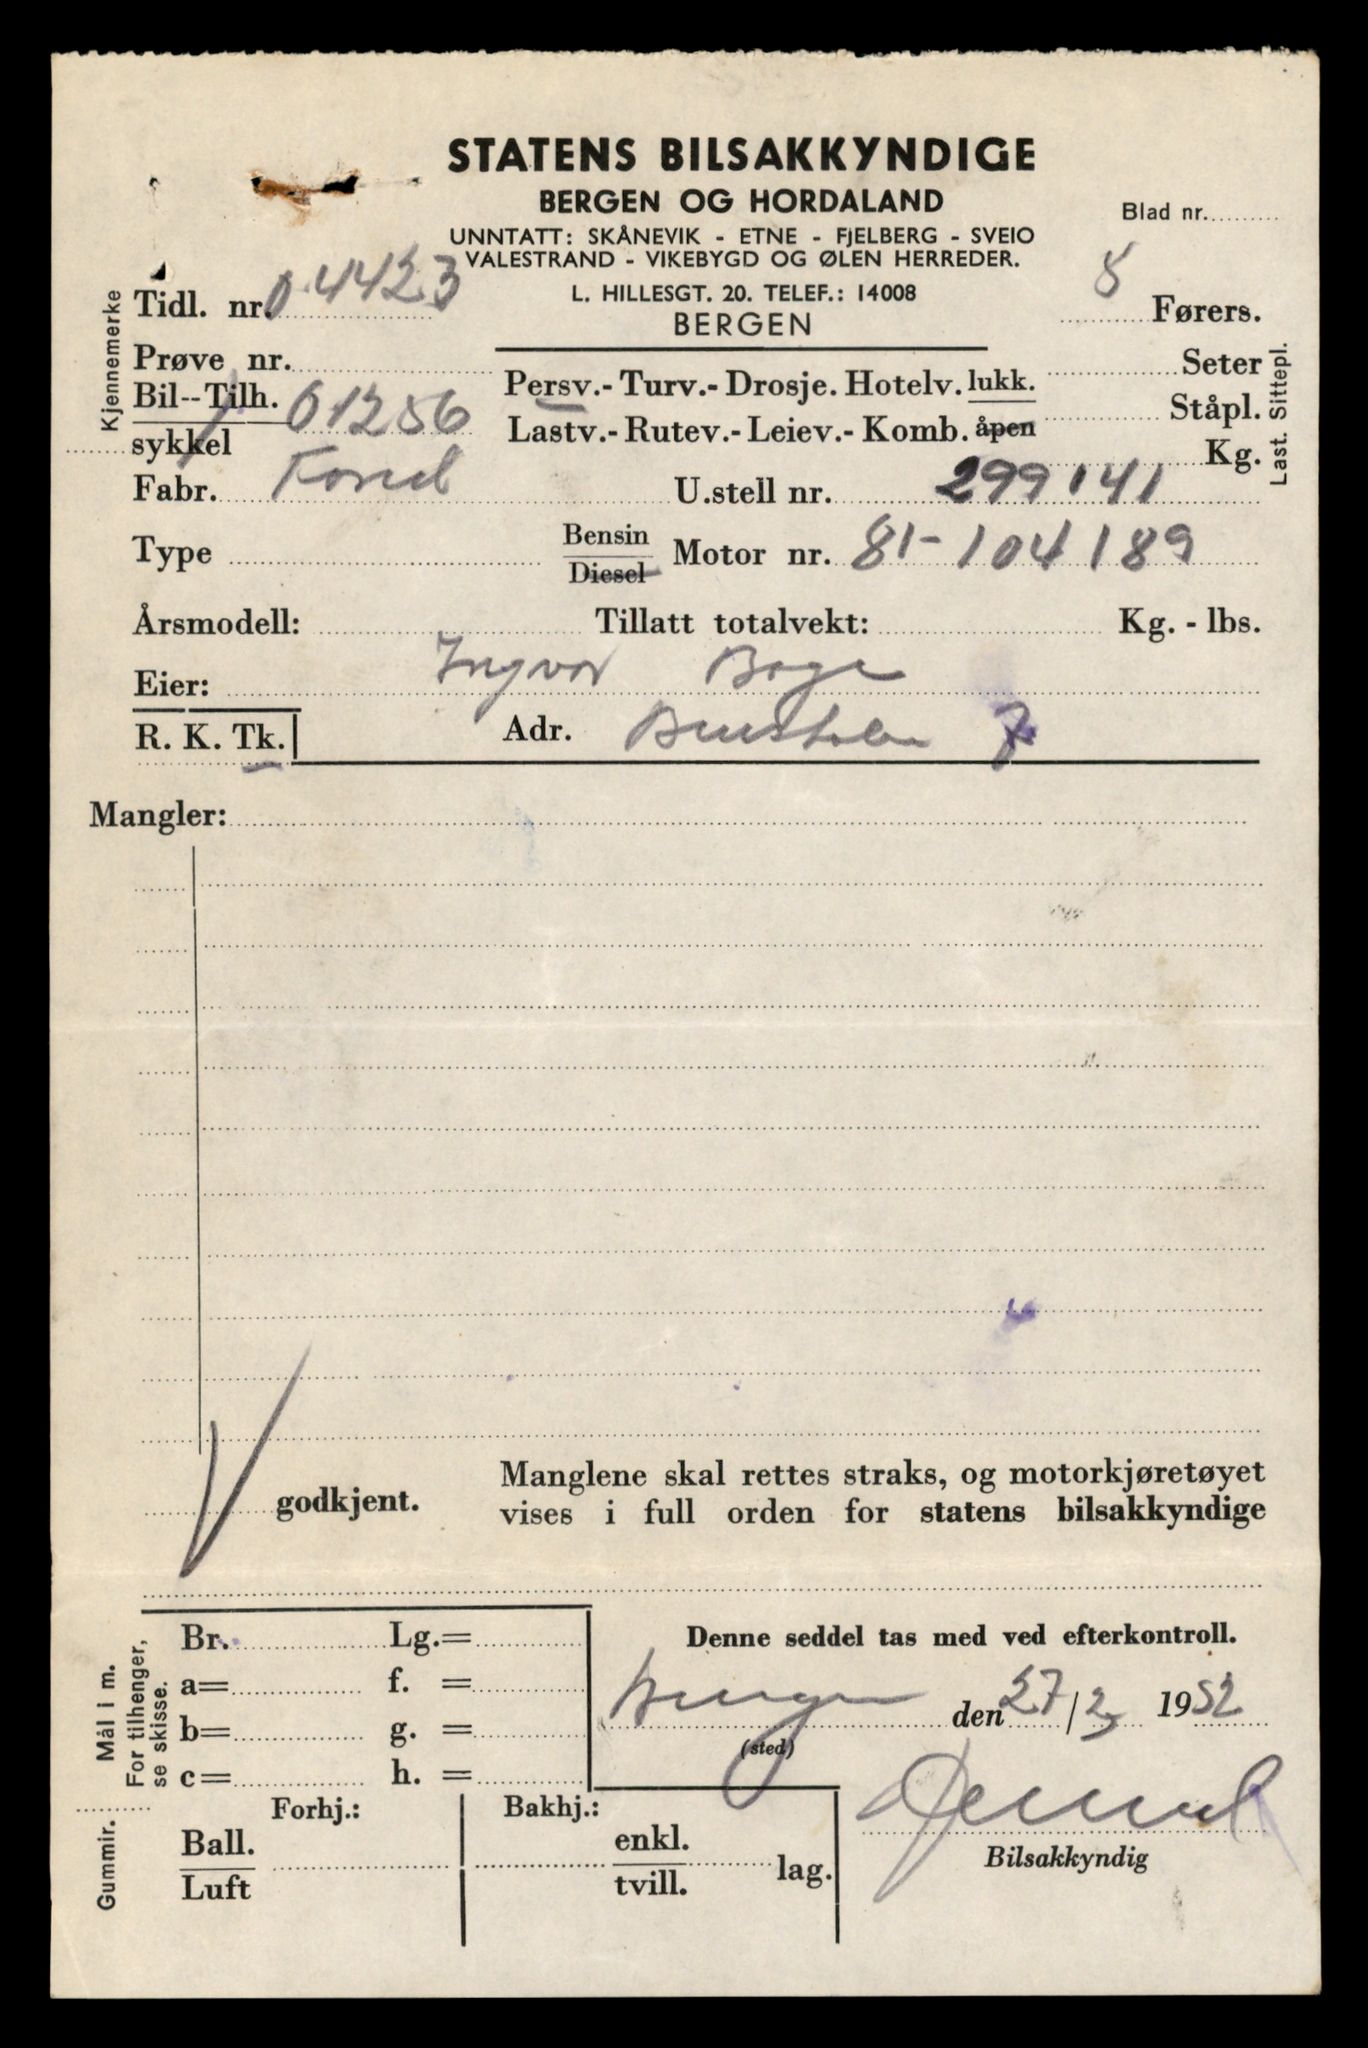 STATENS BILSAKKYNDIGE
BERGEN OG HORDALAND
Blad nr.
UNNTATT: SKÅNEVIK - ETNE - FJELBERG - SVEIO
VALESTRAND - VIKEBYGD OG ØLEN HERREDER.
L. HILLESGT. 20. TELEF.: 14008
BERGEN
Kjennemerke
Tidl. nr. O 4423
5 Førers.
Prøve nr.
Seter
Bil--Tilh. O1256
sykkel
Persv.- Turv.- Drosje. Hotelv. lukk.
Ståpl.
Lastv.- Rutev.- Leiev.- Komb. åpen
Kg.
Last. Sittepl.
Fabr. Ford
U.stell nr. 299141
Type
Bensin
Diesel
Motor nr. 81-104189
Årsmodell:
Tillatt totalvekt: Kg. - lbs.
Eier: Ingvar
R. K. Tk.
Adr.
Mangler:
godkjent.
Manglene skal rettes straks, og motorkjøretøyet
vises i full orden for statens bilsakkyndige
Mål i m.
For tilhenger,
se skisse.
Br. Lg.=
a= f. =
b= g. =
c= h. =
Denne seddel tas med ved efterkontroll.
Bergen den 27/2 1952
(sted)
Gummir.
Forhj.:
Ball.
Luft
Bakhj.:
enkl.
tvill.
lag.
Bilsakkyndig